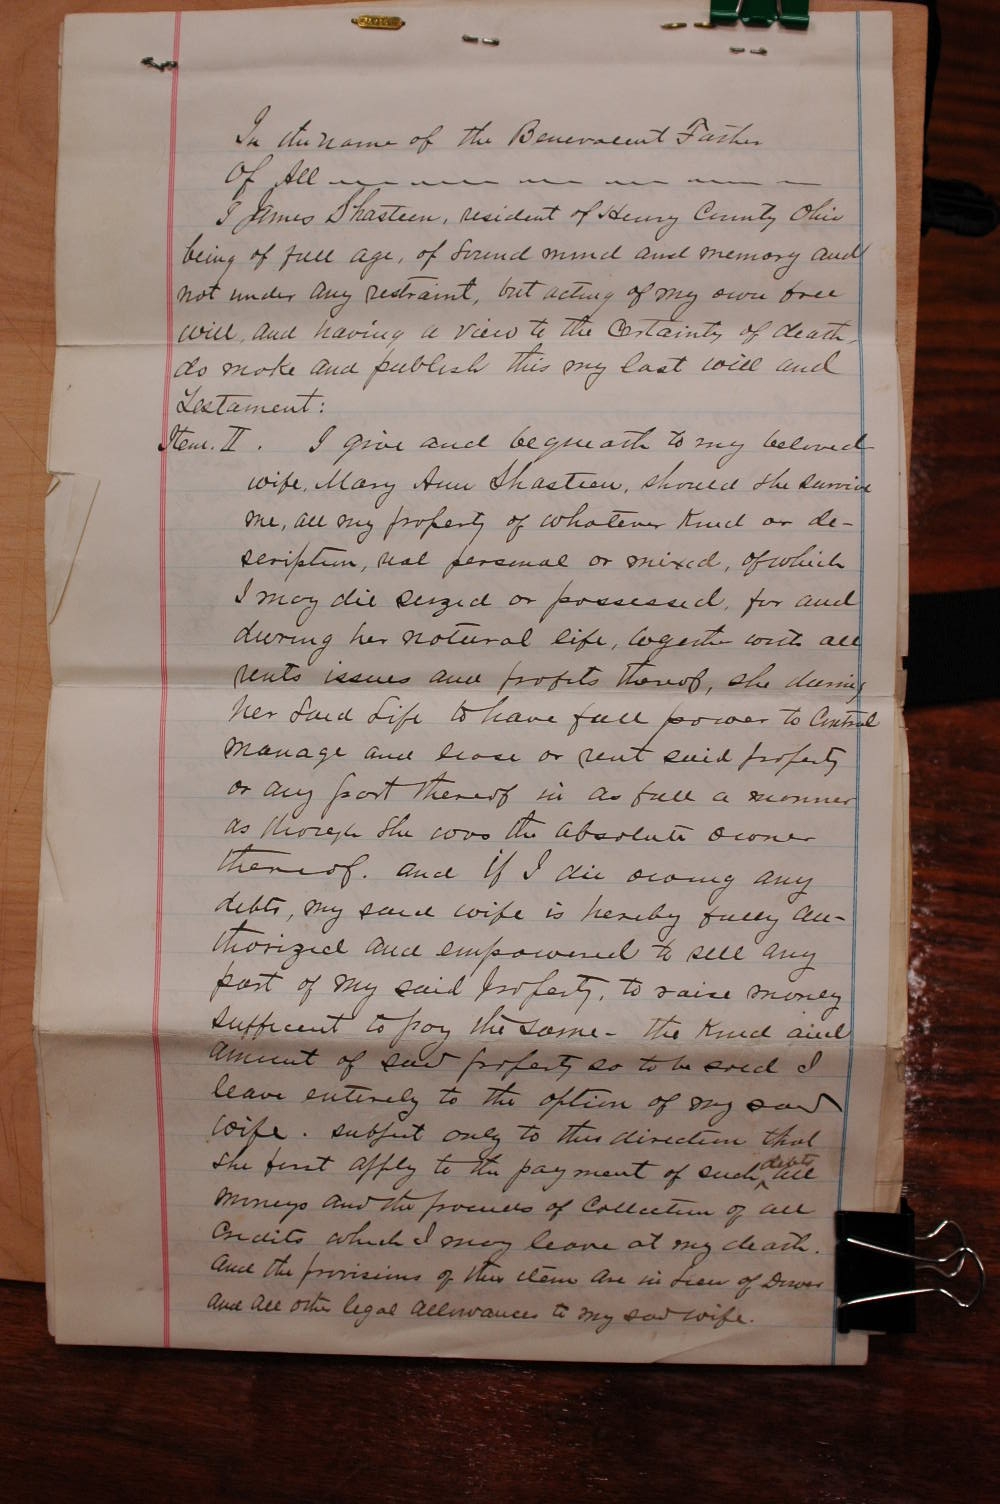 In the name of the Benevolent Father
Of All
I James Shasteen, resident of Henry County Ohio
being of full age, of Sound mind and memory and
not under any restraint, but acting of my own free
will, and having a view to the Certainty of death,
do make and publish this my last will and
Testament:
Item. II. I give and bequeath to my beloved
wife, Mary Ann Shasteen, should she survive
me, all my property of whatever Kind or de-
scription, real personal or mixed, of which
I may die seized or possessed, for and
during her natural life, together with all
rents issues and profits thereof, she during
her Said Life to have full power to Control
manage and lease or rent said property
or any part thereof in as full a manner
as though She was the absolute owner
thereof. and If I die owing any
debts, my said wife is hereby fully au-
thorized and empowered to sell any
part of my said property, to raise money
sufficent to pay the same - the Kind and
amount of said property so to be sold I
leave entirely to the option of my said
wife. subject only to this direction that
she first apply to the payment of such debts all
moneys and the proceeds of Collection of all
Credits which I may leave at my death.
And the provisions of this item are in Lieu of Dower
and all other legal allowances to my said wife.